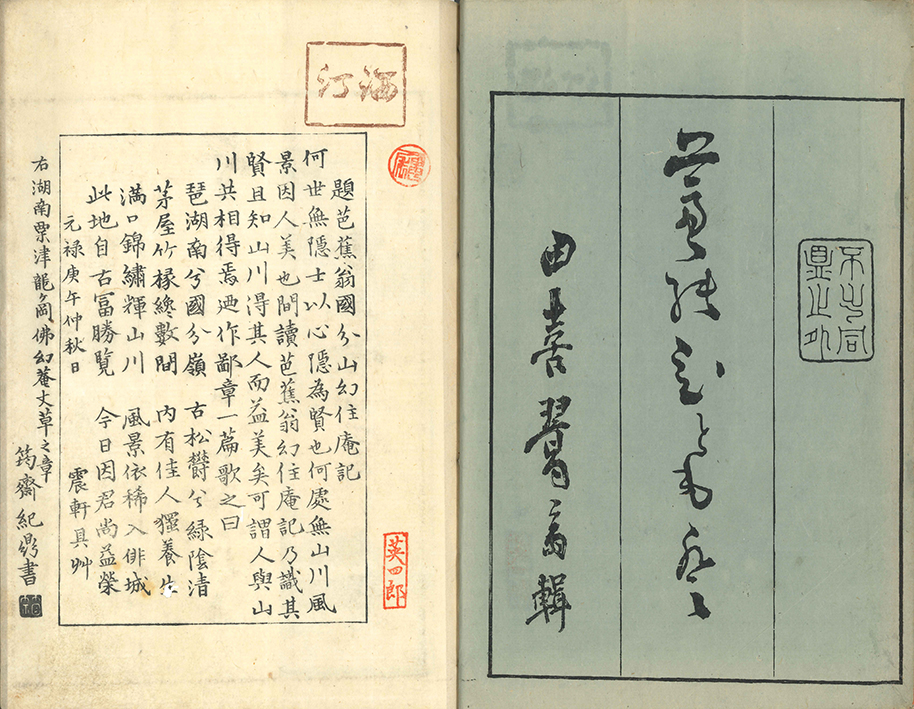 輯
英四郎
題芭蕉翁國分山幻住庵記
何世無隱士以心隱為賢也何處無山川風
景因人美也間讀芭蕉翁幻住庵記乃識其
賢且知山川得其人而益美矣可謂人與山
川共相得焉迺作鄙章一篇歌之曰
琵湖南兮國分嶺 古松欝兮綠陰清
茅屋竹椽纔數間 内有佳人獨養生
滿口錦繡輝山川 風景依稀入俳城
此地自古富勝覽 今日因君尚益榮
元祿庚午仲秋日 震軒具艸
右湖南粟津龍ヶ岡佛幻菴丈草之章
筠齋紀鼎書